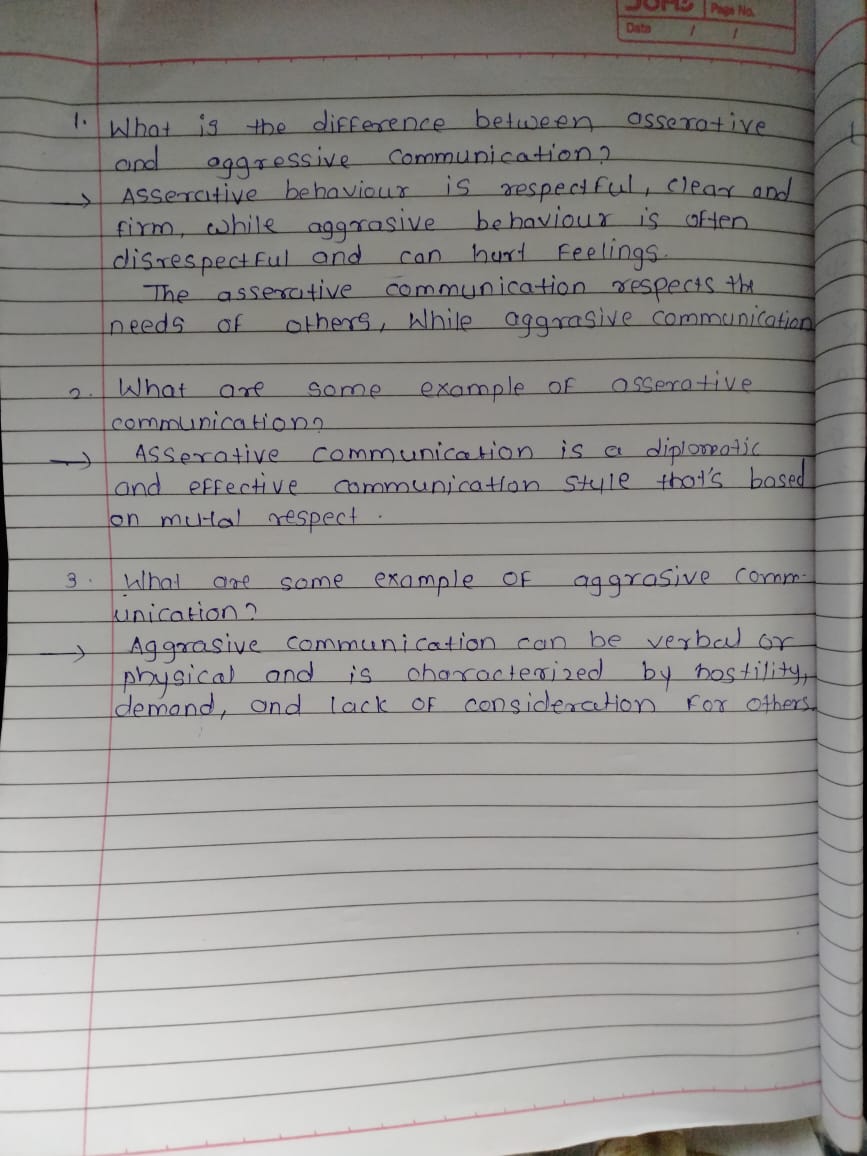 Page No.
Date / /
1. What is the difference between asserative
and aggressive communication?
→ Asserative behaviour is respectful, clear and
firm, while aggrasive behaviour is often
disrespectful and can hurt feelings.
The asserative communication respects the
needs of others, While aggrasive communication
2. What are some example of asserative
communication?
→ Asserative communication is a diplomatic
and effective communication style that's based
on mutal respect.
3. What are some example of aggrasive comm-
unication?
→ Aggrasive communication can be verbal or
physical and is characterized by hostility,
demand, and lack of consideration for others.